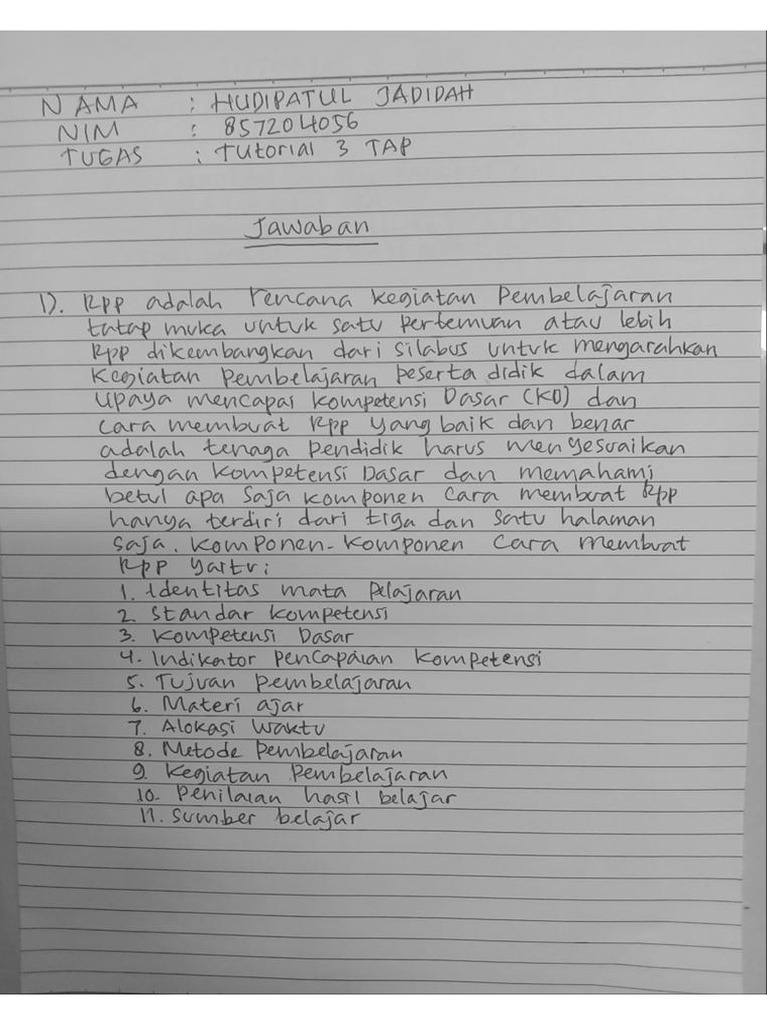 NAMA : HUDIPATUL JADIDAH
NIM : 857204056
TUGAS : Tutorial 3 TAP
Jawaban
1). Rpp adalah rencana kegiatan Pembelajaran
tatap muka untuk satu pertemuan atau lebih
Rpp dikembangkan dari silabus untuk mengarahkan
Kegiatan Pembelajaran peserta didik dalam
upaya mencapai kompetensi Dasar (KD) dan
cara membuat Rpp yang baik dan benar
adalah tenaga pendidik harus menyesuaikan
dengan kompetensi Dasar dan memahami
betul apa saja komponen cara membuat Rpp
hanya terdiri dari tiga dan satu halaman
saja. Komponen-komponen cara membuat
Rpp yaitu:
1. Identitas mata Pelajaran
2. Standar kompetensi
3. Kompetensi Dasar
4. Indikator pencapaian kompetensi
5. Tujuan pembelajaran
6. Materi ajar
7. Alokasi waktu
8. Metode Pembelajaran
9. Kegiatan Pembelajaran
10. Penilaian hasil belajar
11. Sumber belajar